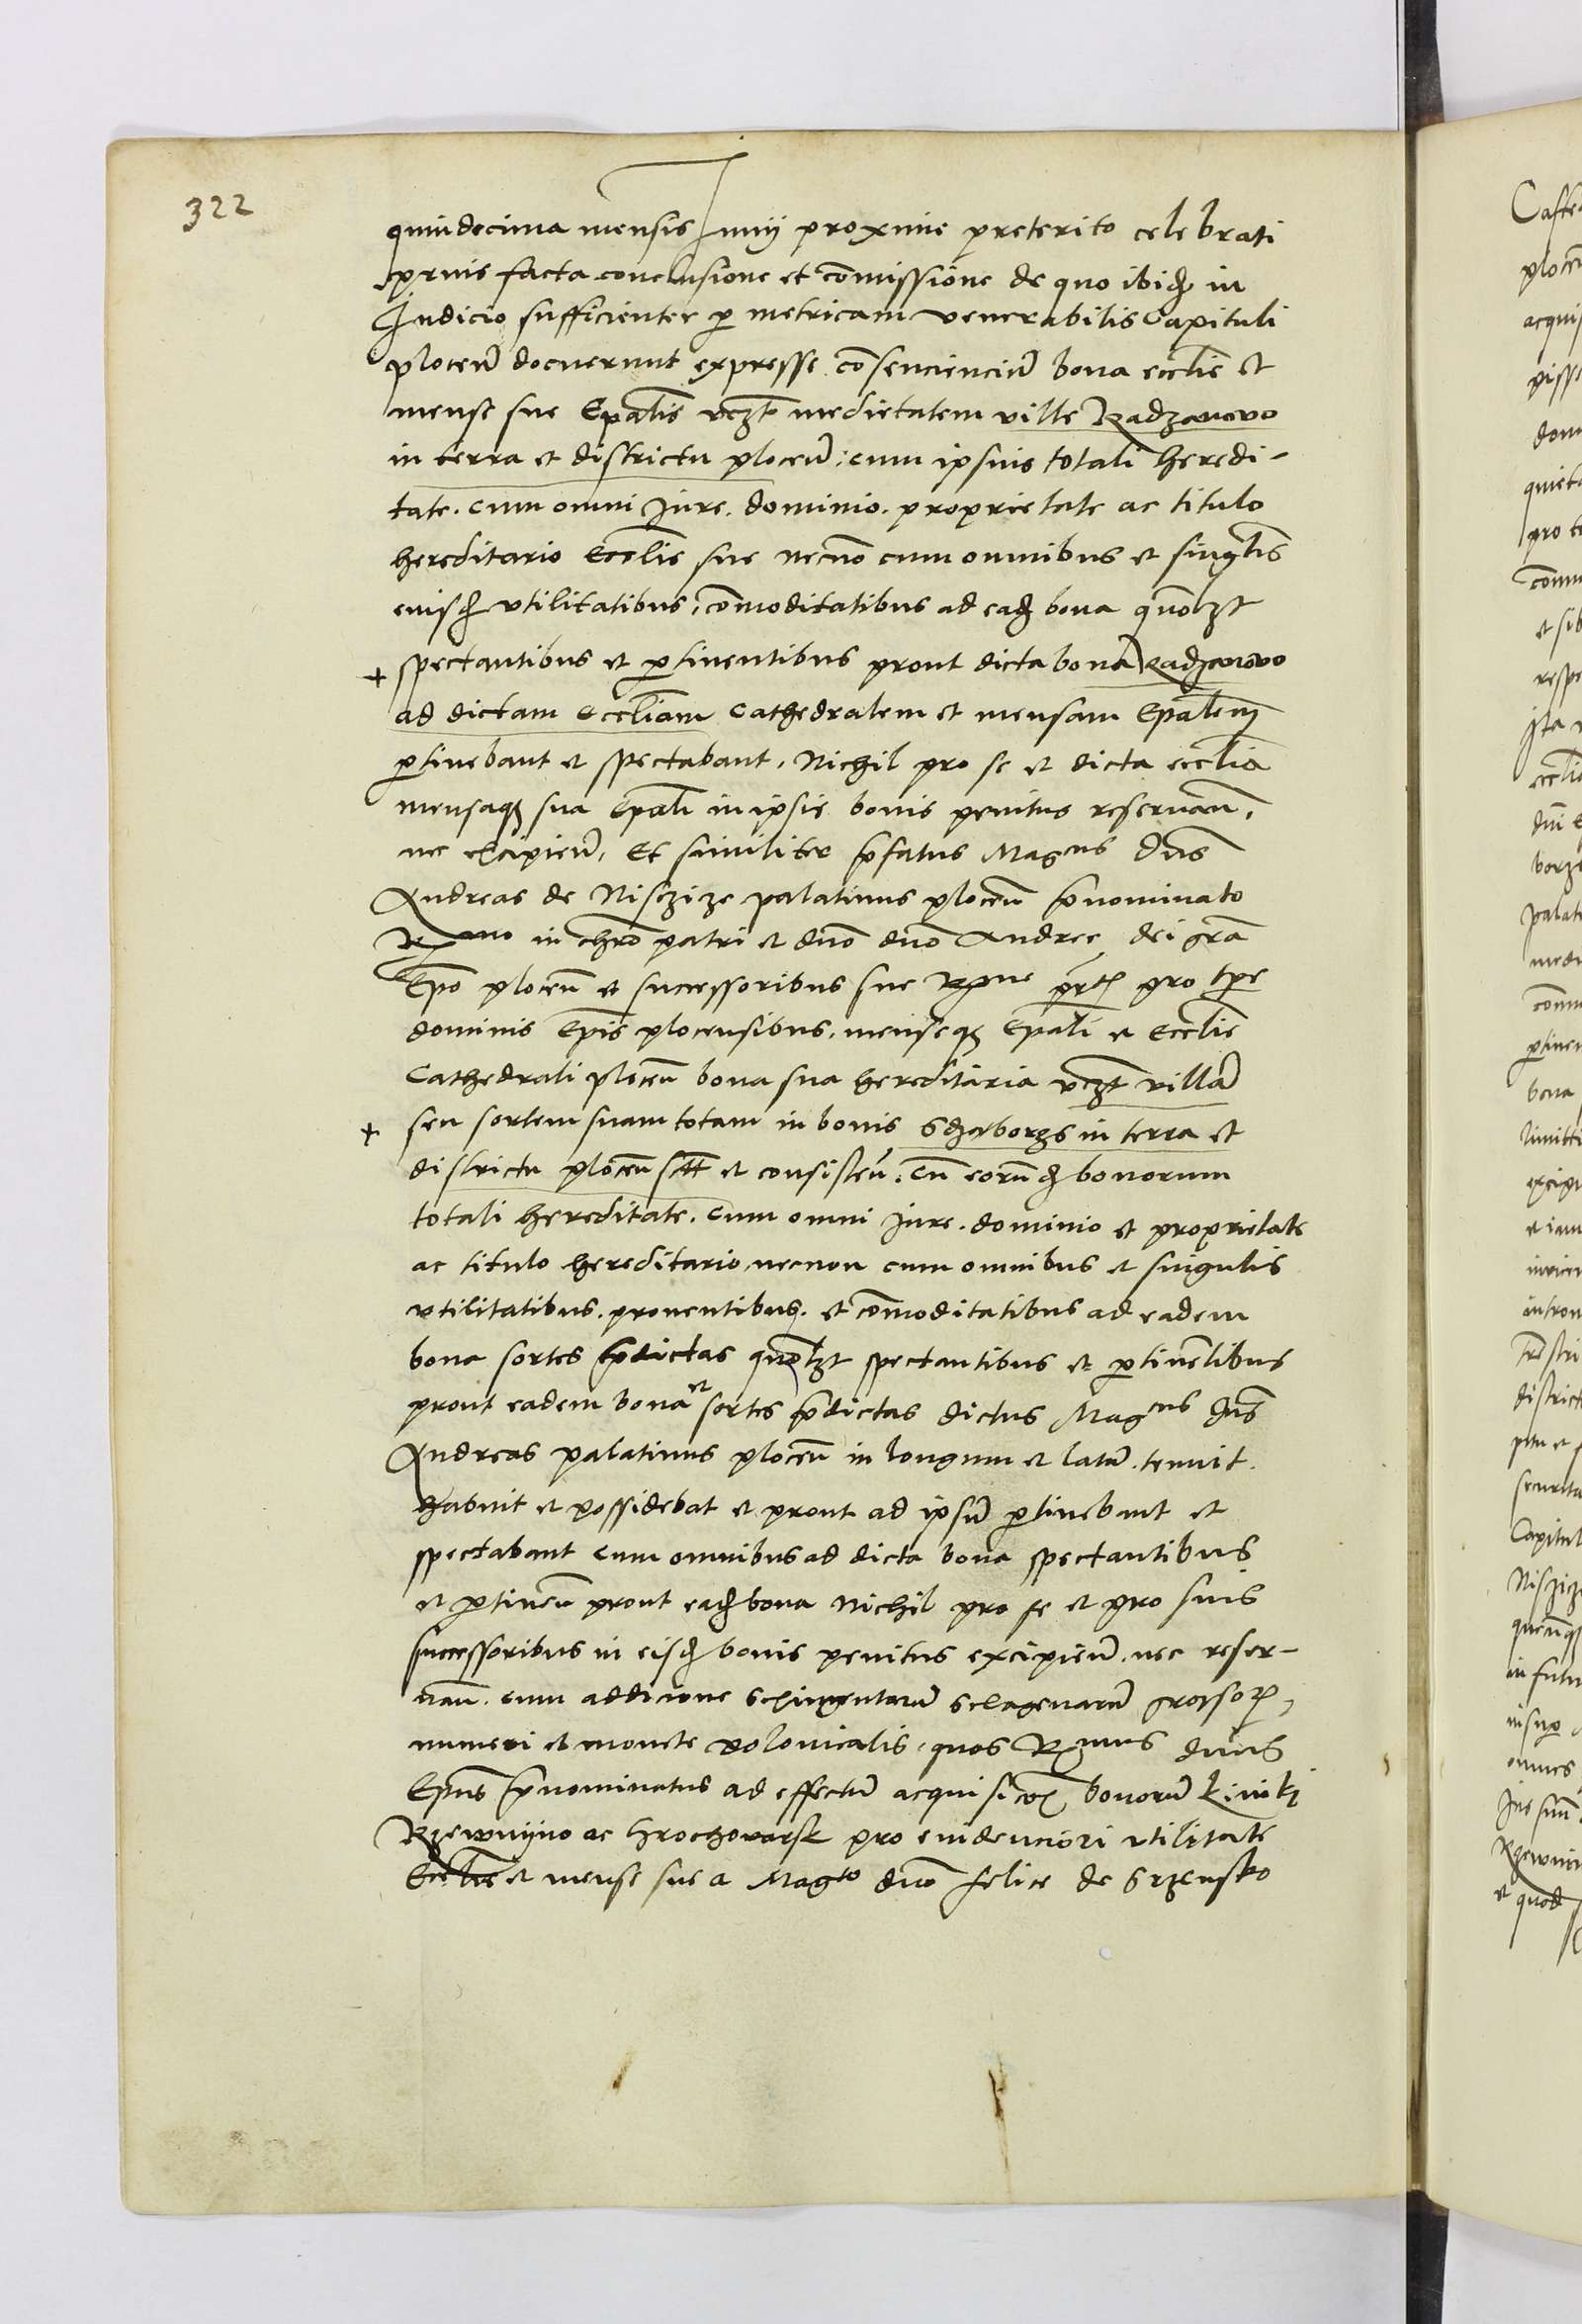 322
quindecima mensis Junij proxime preterito celebrati
prius facta conclusione et cōmissione de quo ibiđ in
Judicio sufficienter p metricam venerabilis Capituli
ploceñ docuerunt expresse cōsencienciū bona ecclīe et
mense sue Epalīs vczt medietatem ville Radzanovo
in terra et districtu ploceñ: cum ipsius totali heredi-
tate. cum omni Jure. dominio. proprietate ac titulo
hereditario Ecclīe sue necnō cum omnibus et singlīs
euisđ vtilitatibus, cōmoditatibus ad eađ bona quōlzt
+ spectantibus et ptinentibus prout dicta bona Radzanovo
ad dictam Eccliam Cathedralem et mensam Epalem
ptinebant et spectabant, Nichil pro se et dicta ecclia
mensaqz sua Epali in ipsis bonis penitus reseruañ,
nec excipieñ, Et similiter p̄fatus Magcus Dns
Andreas de Nisczize palatinus ploceñ p̄nominato
Rmo in chrō patri et dnō dnō Andree dei grā
Epō ploceñ et successoribus sue pro tpe
dominis Epīs plocensibus, menseqz Epali et Ecclīe
Cathedrali ploceñ bona sua hereditaria vczt villā
+ seu sortem suam totam in bonis in terra et
districtu ploceñ et consisteñ. Cū eorūđ bonorum
totali hereditate. cum omni Jure. dominio et proprietate
ac titulo hereditario, necnon cum omnibus et singulis
vtilitatibus. prouentibus. et cōmoditatibus ad eadem
bona sortes p̄dictas quōlzt spectantibus et ptinētibus
prout eadem bona et sortes p̄dictas dictus Magcus Dns
Andreas palatinus ploceñ in longum et latū. tenuit.
habuit et possidebat et prout ad ipsū ptinebant et
spectabant cum omnibus ad dicta bona spectantibus
et ptineñ prout eađ bona Nichil pro se et pro suis
successoribus in eisđ bonis penitus excipieñ. nec reser-
uañ. cum addicione sexagenarū grossorꝫ
numeri et monete polonicalis, quos Rmus dnus
Epus p̄nominatus ad effectū acquisicōꝫ bonorū
ac pro euidenciori vtilitate
Ecclīe et mense sue a Magco dnō felice de Srzensko